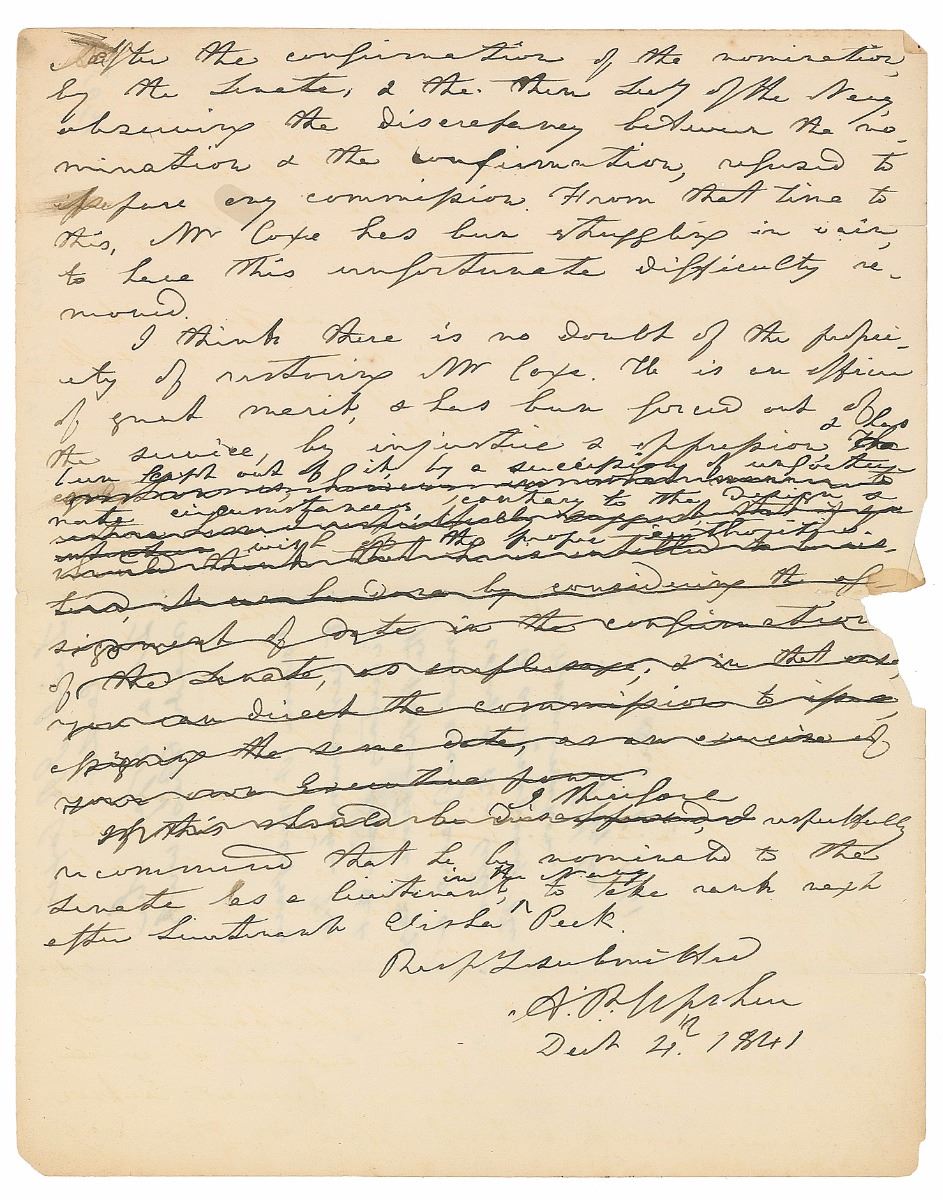 after the confirmation of the nomination
by the Senate, & the then Secy of the Navy
observing the discrepancy between the no-
mination & the confirmation, refused to
prepare any commission. From that time to
this, Mr Coxe has been struggling in vain,
to have this unfortunate difficulty re-
moved.
I think there is no doubt of the propri-
ety of restoring Mr Coxe. He is an officer
of great merit, & has been forced out of
the service, by injustice & oppression, & has
been kept out of it, by a succession of unfortu-
nate circumstances, contrary to the design &
with the proper authorities
would think that he is entitled to
by considering the as-
signment of date in the confirmation
of the Senate, as surplusage, & in that case,
you can direct the commission to issue,
assigning the same date, as an exercise of
your own Executive power
If this should be I therefore respectfully
recommend that he be nominated to the
Senate as a lieutenant in the Navy, to take rank next
after Lieutenant Elisha Peck.
Respy submitted
A. P. Upshur
Decr 4th. 1841